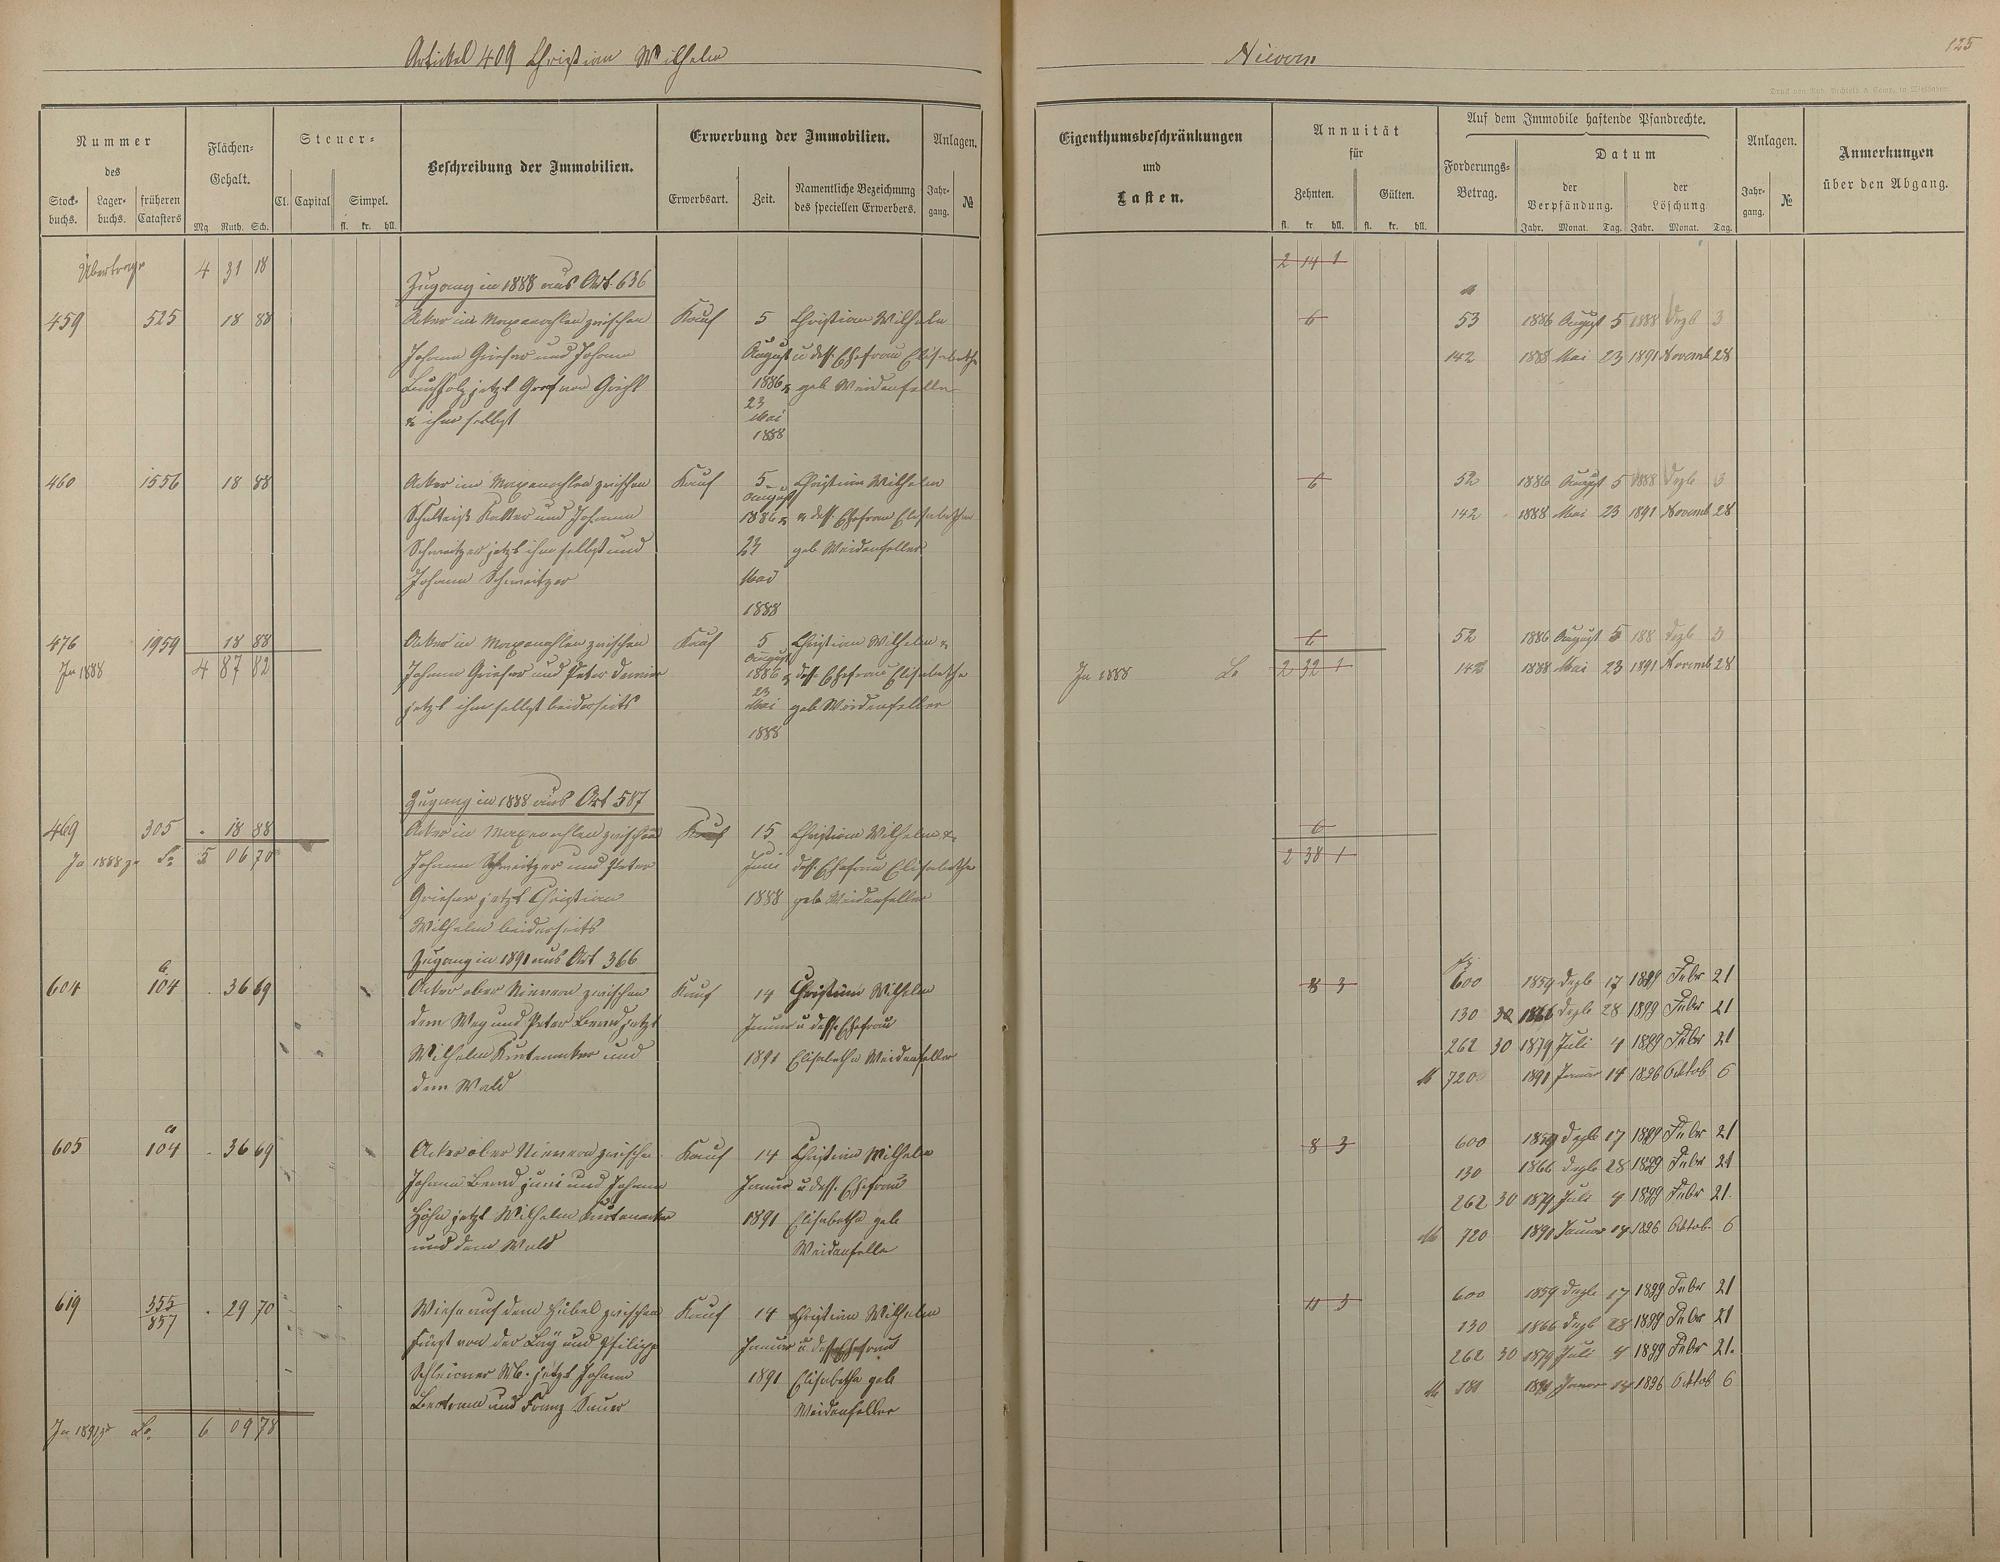 Artikel 409 Christian Wilhelm
Nievern
125
Nummer
des
Stock-
buchs.
Lager-
buchs.
früheren
Catasters
Flächen-
Gehalt.
Mg. Ruth. Sch.
Steuer-
Cl. Capital Simpel.
fl. kr. hll.
Beschreibung der Immobilien.
Erwerbung der Immobilien.
Erwerbsart. Zeit.
Namentliche Bezeichnung
des speciellen Erwerbers.
Anlagen.
Jahr-
gang.
№
Eigenthumsbeschränkungen
und
Lasten.
Annuität
für
Zehnten. Gülten.
fl. kr. hll. fl. kr. hll.
Auf dem Immobile haftende Pfandrechte.
Forderungs-
Betrag.
Datum
der
Verpfändung.
der
Löschung
Jahr. Monat. Tag. Jahr. Monat. Tag.
Anlagen.
Jahr-
gang.
№
Anmerkungen
über den Abgang.
Übertrag 4 31 18
2 14 1
Zugang in 1888 aus Art. 636
459 525 18 88
Acker im zwischen
Johann Grieser und Johann
Buchholz jetzt Graf von
& ihm selbst
Kauf
5
August
1886 &
23
Mai
1888
Christian Wilhelm
u dess. Ehefrau Elisabetha
geb Weidenfeller
6
53 1886 August 5 1888 Dezb 3
142 1888 Mai 23 1891 Novemb 28
460 1556 18 88
Acker im zwischen
Schultheiß und Johann
Schweitzer jetzt ihm selbst und
Johann Schweitzer
Kauf
5
August
1886 &
23
Mai
1888
Christian Wilhelm
& dess. Ehefrau Elisabetha
geb Weidenfeller
6
52 1886 August 5 1888 Dezb 3
142 1888 Mai 23 1891 Novemb 28
476 1959 18 88
In 1888 4 87 82
Acker in zwischen
Johann Grieser und Peter
jetzt ihm selbst beiderseits
Kauf
5
August
1886 &
23
Mai
1888
Christian Wilhelm &
dess. Ehefrau Elisabetha
geb Weidenfeller
In 1888
6
2 32 1
52 1886 August 5 188 Dezb 3
142 1888 Mai 23 1891 Novemb 28
Zugang in 1888 aus Art 587
469 305 18 88
In 1888 5 06 70
Acker in zwischen
Johann Schweitzer und Peter
Grieser jetzt Christian
Wilhelm beiderseits
Kauf
15
Juni
1888
Christian Wilhelm &
dess. Ehefrau Elisabetha
geb Weidenfeller
6
2 38 1
Zugang in 1891 aus Art 366
604 104 36 69
Acker ober Nievern zwischen
dem Weg und Peter Bernd jetzt
Wilhelm und
dem Wald
Kauf
14
Januar
1891
Christian Wilhelm
u dess. Ehefrau
Elisabetha Weidenfeller
8 3
600 1859 Dezb 17 1899 Febr 21
130 30 1866 Dezb 28 1899 Febr 21
262 30 1879 Juli 4 1899 Febr 21
720 1891 Januar 14 1896 Oktob 6
605 104 36 69
Acker ober Nievern zwischen
Johann Bernd juni und Johann
Höhn jetzt Wilhelm
und dem Wald
Kauf
14
Januar
1891
Christian Wilhelm
u dess. Ehefrau
Elisabetha geb
Weidenfelle
8 3
600 1859 Dezb 17 1899 Febr 21
130 1866 Dezb 28 1899 Febr 21
262 30 1879 Juli 4 1899 Febr 21.
720 1891 Januar 14 1896 Oktob. 6
619 355
857 29 70
Wiese auf dem Hübel zwischen
Fürst von der Lay und Philipp
jetzt Johann
Bertram und Franz Sauer
Kauf
14
Januar
1891
Christian Wilhelm
u dess. Ehefrau
Elisabetha geb
Weidenfeller
11 3
600 1859 Dezb 17 1899 Febr 21
130 1866 Dezb 28 1899 Febr 21
262 30 1879 Juli 4 1899 Febr 21.
181 1891 Januar 14 1896 Oktob 6
In 1891 6 09 78